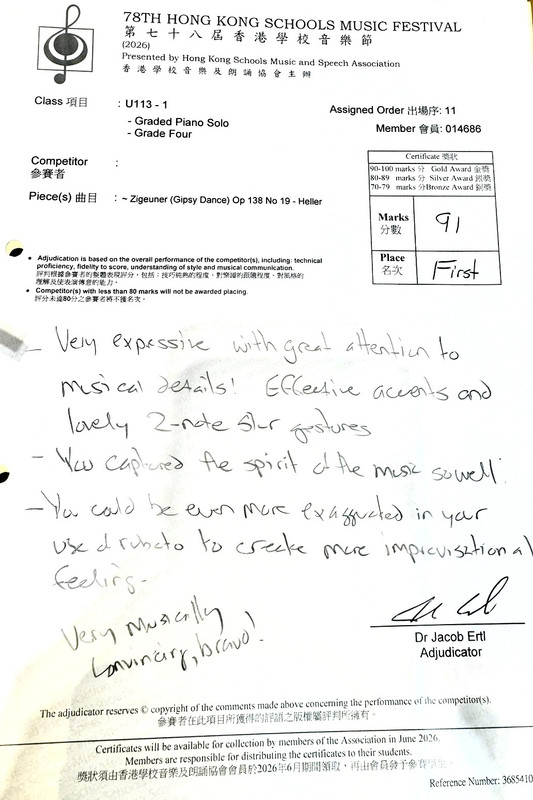 78TH HONG KONG SCHOOLS MUSIC FESTIVAL
第七十八屆香港學校音樂節
(2026)
Presented by Hong Kong Schools Music and Speech Association
香港學校音樂及朗誦協會主辦
Class 項目 : U113 - 1
- Graded Piano Solo
- Grade Four
Assigned Order 出場序: 11
Member 會員: 014686
Competitor :
參賽者
Piece(s) 曲目 : ~ Zigeuner (Gipsy Dance) Op 138 No 19 - Heller
Certificate 獎狀
90-100 marks 分 Gold Award 金獎
80-89 marks 分 Silver Award 銀獎
70-79 marks 分 Bronze Award 銅獎
Marks 91
分數
Place First
名次
• Adjudication is based on the overall performance of the competitor(s), including: technical
proficiency, fidelity to score, understanding of style and musical communication.
評判根據參賽者的整體表現評分，包括：技巧純熟的程度、對樂譜的跟隨程度、對風格的
理解及使表演傳意的能力。
• Competitor(s) with less than 80 marks will not be awarded placing.
評分未達80分之參賽者將不獲名次。
- Very expressive with great attention to
musical details! Effective accents and
lovely 2-note slur gestures
- You captured the spirit of the music so well!
- You could be even more exaggerated in your
use of rubato to create more improvisational
feeling.
Very musically
convincing, bravo!
Dr Jacob Ertl
Adjudicator
The adjudicator reserves © copyright of the comments made above concerning the performance of the competitor(s).
參賽者在此項目所獲得的評語之版權屬評判所擁有。
Certificates will be available for collection by members of the Association in June 2026.
Members are responsible for distributing the certificates to their students.
獎狀須由香港學校音樂及朗誦協會會員於2026年6月期間領取，再由會員發予參賽學生
Reference Number: 3685410